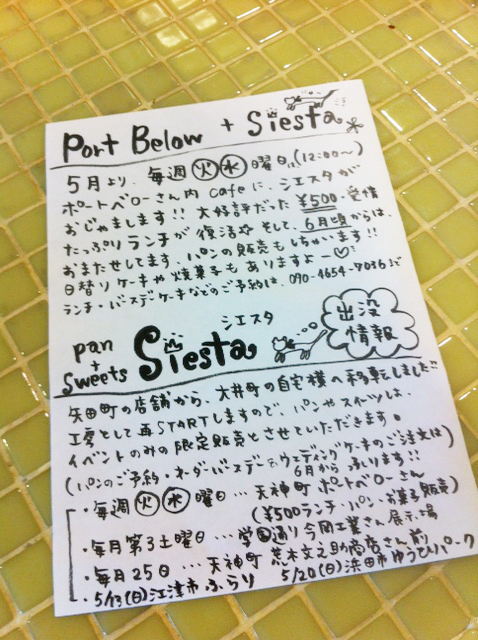 Port Below + Siesta
5月より、毎週火水曜日に(12:00〜)
ポートベローさん内 cafeに、シエスタが
おじゃまします!! 大好評だった ¥500 愛情
たっぷりランチが復活☆ そして、6月頃からは、
おまたせしてます、パンの販売もしちゃいます!!
日替りケーキや焼菓子もありますよー♡
ランチ・バースデーケーキなどのご予約は、090-4654-7036まで
pan + sweets Siesta シエスタ
出没情報
矢田町の店舗から、大井町の自宅横へ移転しました!!
工房として再STARTしますので、パンやスイーツは、
イベントのみの限定販売とさせていただきます。
(パンのご予約・オーダーバースデー&ウェディングケーキのご注文は)
6月から ふります!!
・毎週火水曜日…天神町 ポートベローさん
(¥500ランチ・パン・お菓子販売)
・毎月第3土曜日…学園通り 今岡工業さん展示場
・毎月25日…天神町 荒木文之助商店さん前
5/13(日)江津市ふらり 5/20(日)浜田市ゆうひパーク